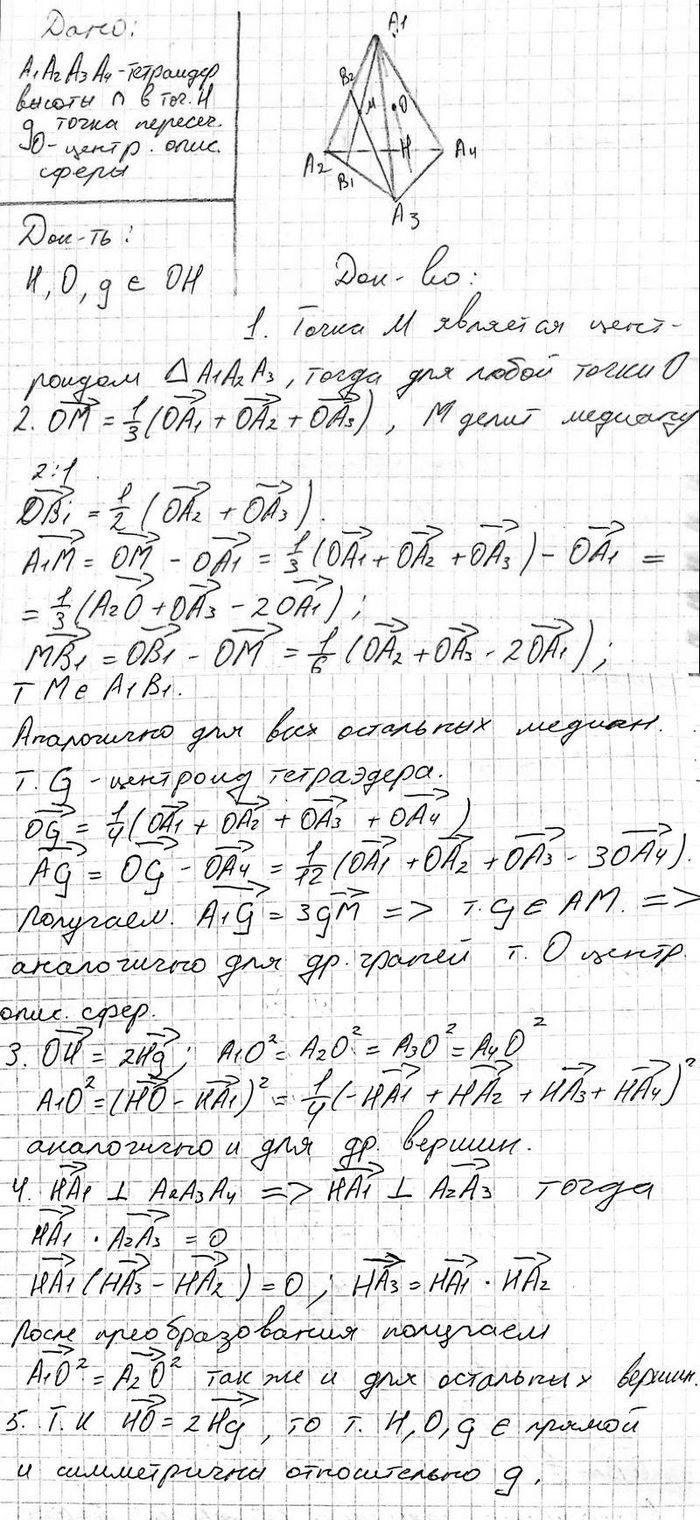 Дано:
A1A2A3A4-тетраидер
высоты ∩ в точ. H
g точка пересеч.
O-центр. опис.
сферы
A1
B2
M
O
A2
H
A4
B1
A3
Док-ть:
H, O, g ∈ OH
Док-во:
1. Точка M является цент-
роидом △A1A2A3, тогда для любой точки O
2. OM⃗ = 1/3(OA1⃗ + OA2⃗ + OA3⃗), M делит медиану
2:1
OB1⃗ = 1/2 (OA2⃗ + OA3⃗).
A1M⃗ = OM⃗ - OA1⃗ = 1/3(OA1⃗ + OA2⃗ + OA3⃗) - OA1⃗ =
= 1/3(A2O⃗ + OA3⃗ - 2OA1⃗);
MB1⃗ = OB1⃗ - OM⃗ = 1/6 (OA2⃗ + OA3⃗ - 2OA1⃗);
т M ∈ A1B1.
Аналогично для всех остальных медиан.
т. G - центроид тетраэдера.
Og⃗ = 1/4(OA1⃗ + OA2⃗ + OA3⃗ + OA4⃗)
Ag⃗ = Og⃗ - OA4⃗ = 1/12(OA1⃗ + OA2⃗ + OA3⃗ - 3OA4⃗).
Получаем. A1G⃗ = 3gM⃗ => т. g ∈ AM. =>
аналогично для др. граней т. O центр.
опис. сфер.
3. OH⃗ = 2Hg⃗; A1O² = A2O² = A3O² = A4O²
A1O² = (HO⃗ - HA1⃗)² = 1/4(-HA1⃗ + HA2⃗ + HA3⃗ + HA4⃗)²
аналогично и для др. вершин.
4. HA1⃗ ⊥ A2A3A4 => HA1⃗ ⊥ A2A3⃗ тогда
HA1⃗ · A2A3⃗ = 0
HA1⃗(HA3⃗ - HA2⃗) = 0; HA3⃗ = HA1⃗ · HA2⃗
После преобразования получаем
A1O⃗² = A2O⃗² так же и для остальных вершин.
5. Т.к HO⃗ = 2Hg⃗, то т. H, O, g ∈ прямой
и симметричны относительно g.